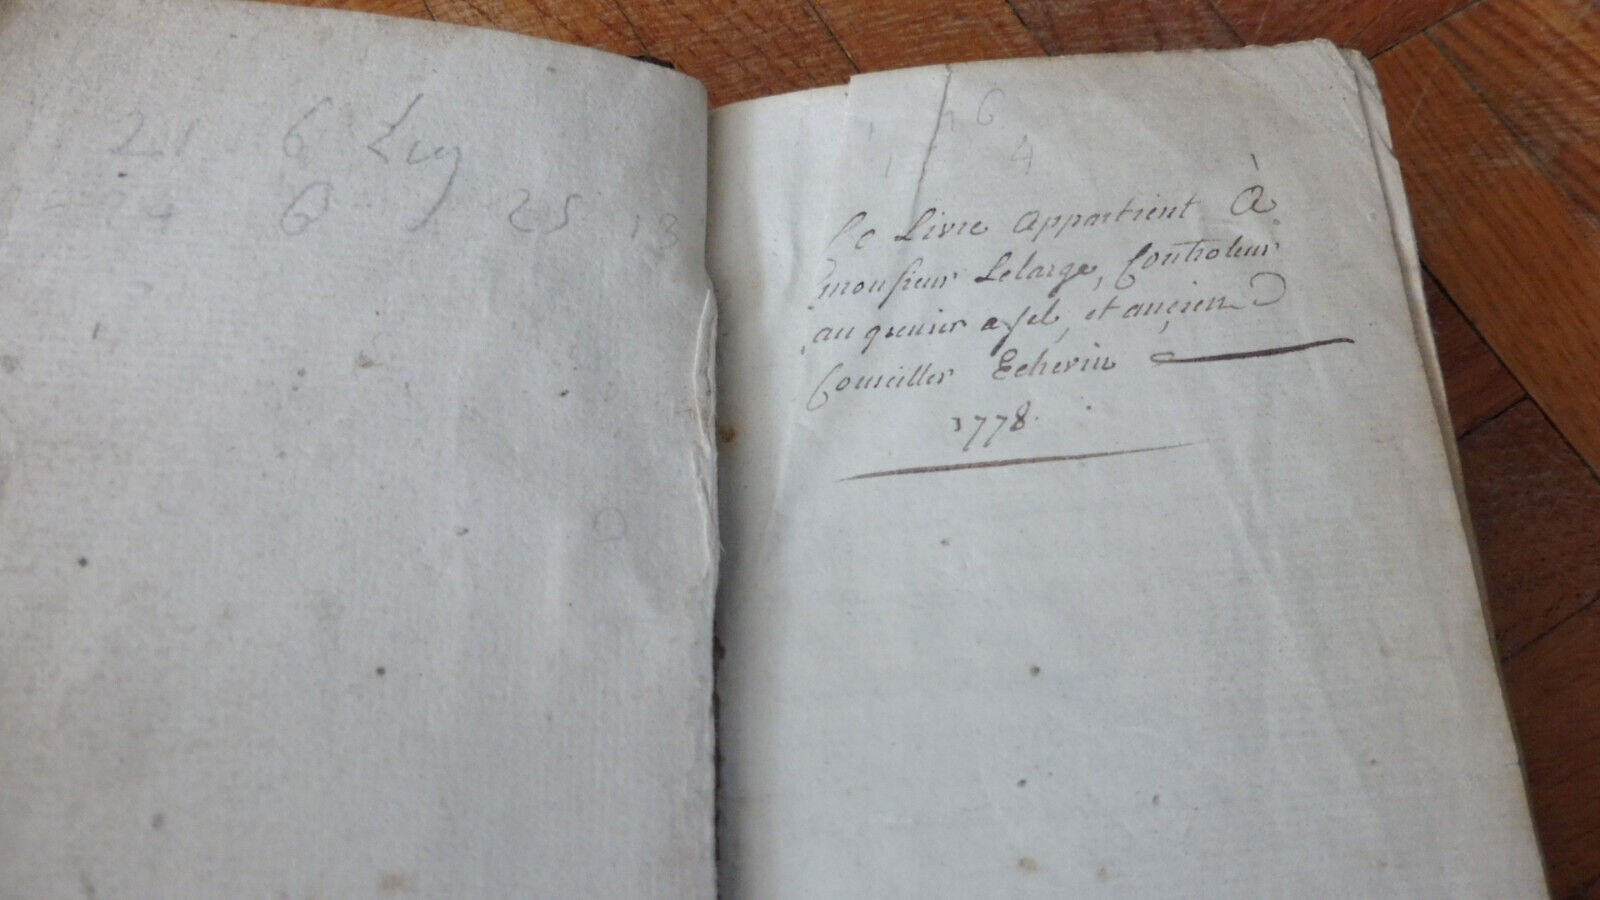 21 6 Luy
4 6 25 13
6
4
Ce Livre Appartient À
monsieur Lelarge, Controleur
au grenier a sel, et ancien
Conseiller Echevin
1778.